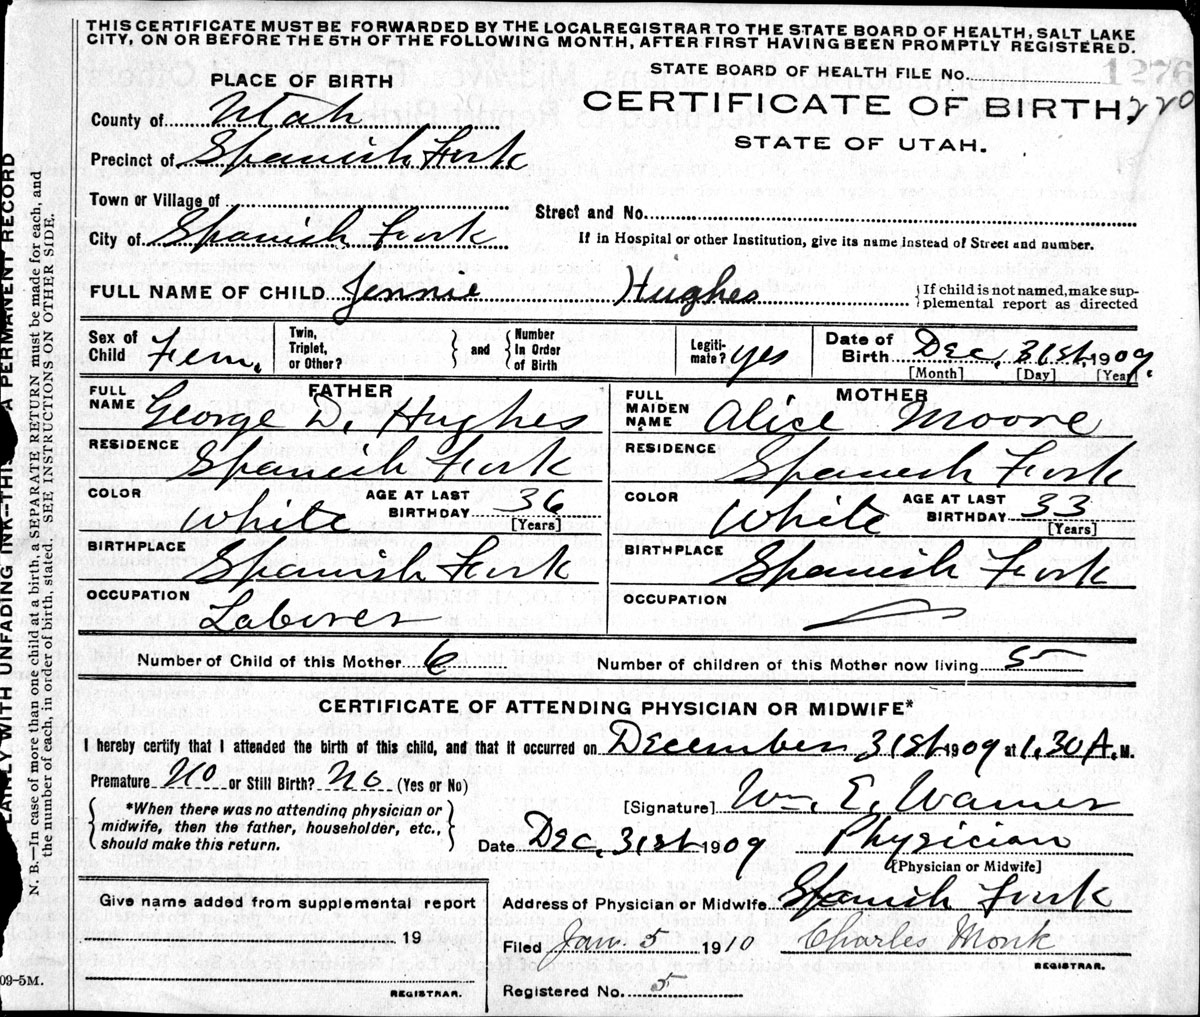 THIS CERTIFICATE MUST BE FORWARDED BY THE LOCAL REGISTRAR TO THE STATE BOARD OF HEALTH, SALT LAKE
CITY, ON OR BEFORE THE 5TH OF THE FOLLOWING MONTH, AFTER FIRST HAVING BEEN PROMPTLY REGISTERED.
PLACE OF BIRTH
STATE BOARD OF HEALTH FILE No. 1276
CERTIFICATE OF BIRTH, 220
STATE OF UTAH.
County of Utah
Precinct of Spanish Fork
Town or Village of
Street and No.
City of Spanish Fork
If in Hospital or other Institution, give its name instead of Street and number.
FULL NAME OF CHILD Jennie Hughes
{If child is not named, make sup-
plemental report as directed
Sex of Child Fem.
Twin, Triplet, or Other? } and { Number In Order of Birth
Legiti-mate? yes
Date of Birth Dec. 31st. 1909.
[Month] [Day] [Year]
FATHER
FULL NAME George D. Hughes
RESIDENCE Spanish Fork
COLOR White
AGE AT LAST BIRTHDAY 36
[Years]
BIRTHPLACE Spanish Fork
OCCUPATION Laborer
MOTHER
FULL MAIDEN NAME Alice Moore
RESIDENCE Spanish Fork
COLOR White
AGE AT LAST BIRTHDAY 33
[Years]
BIRTHPLACE Spanish Fork
OCCUPATION
Number of Child of this Mother 6
Number of children of this Mother now living 5
CERTIFICATE OF ATTENDING PHYSICIAN OR MIDWIFE*
I hereby certify that I attended the birth of this child, and that it occurred on December 31st 1909 at 1.30 A. M.
Premature No or Still Birth? No (Yes or No)
*When there was no attending physician or
midwife, then the father, householder, etc.,
should make this return.
[Signature] Wm. E. Warner
Date Dec. 31st 1909 Physician
[Physician or Midwife]
Give name added from supplemental report
19
REGISTRAR.
Address of Physician or Midwife Spanish Fork
Filed Jan. 5 1910 Charles Monk
REGISTRAR.
Registered No. 5
PLAINLY WITH UNFADING INK—THIS A PERMANENT RECORD
N. B.—In case of more than one child at a birth, a SEPARATE RETURN must be made for each, and
the number of each, in order of birth, stated. SEE INSTRUCTIONS ON OTHER SIDE.
09-5M.